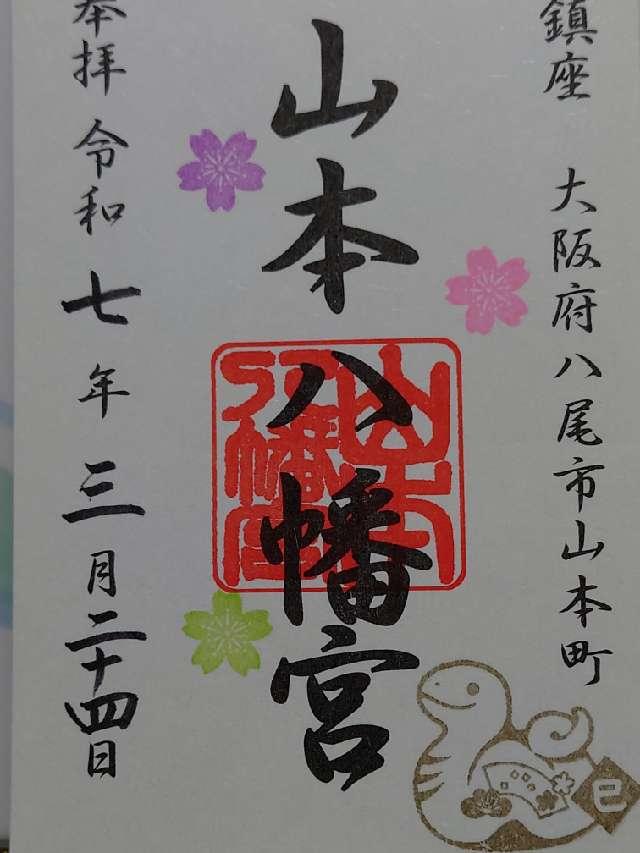 鎮座 大阪府八尾市山本町
山本八幡宮
奉拝 令和七年三月二十四日
山本
八幡宮
巳